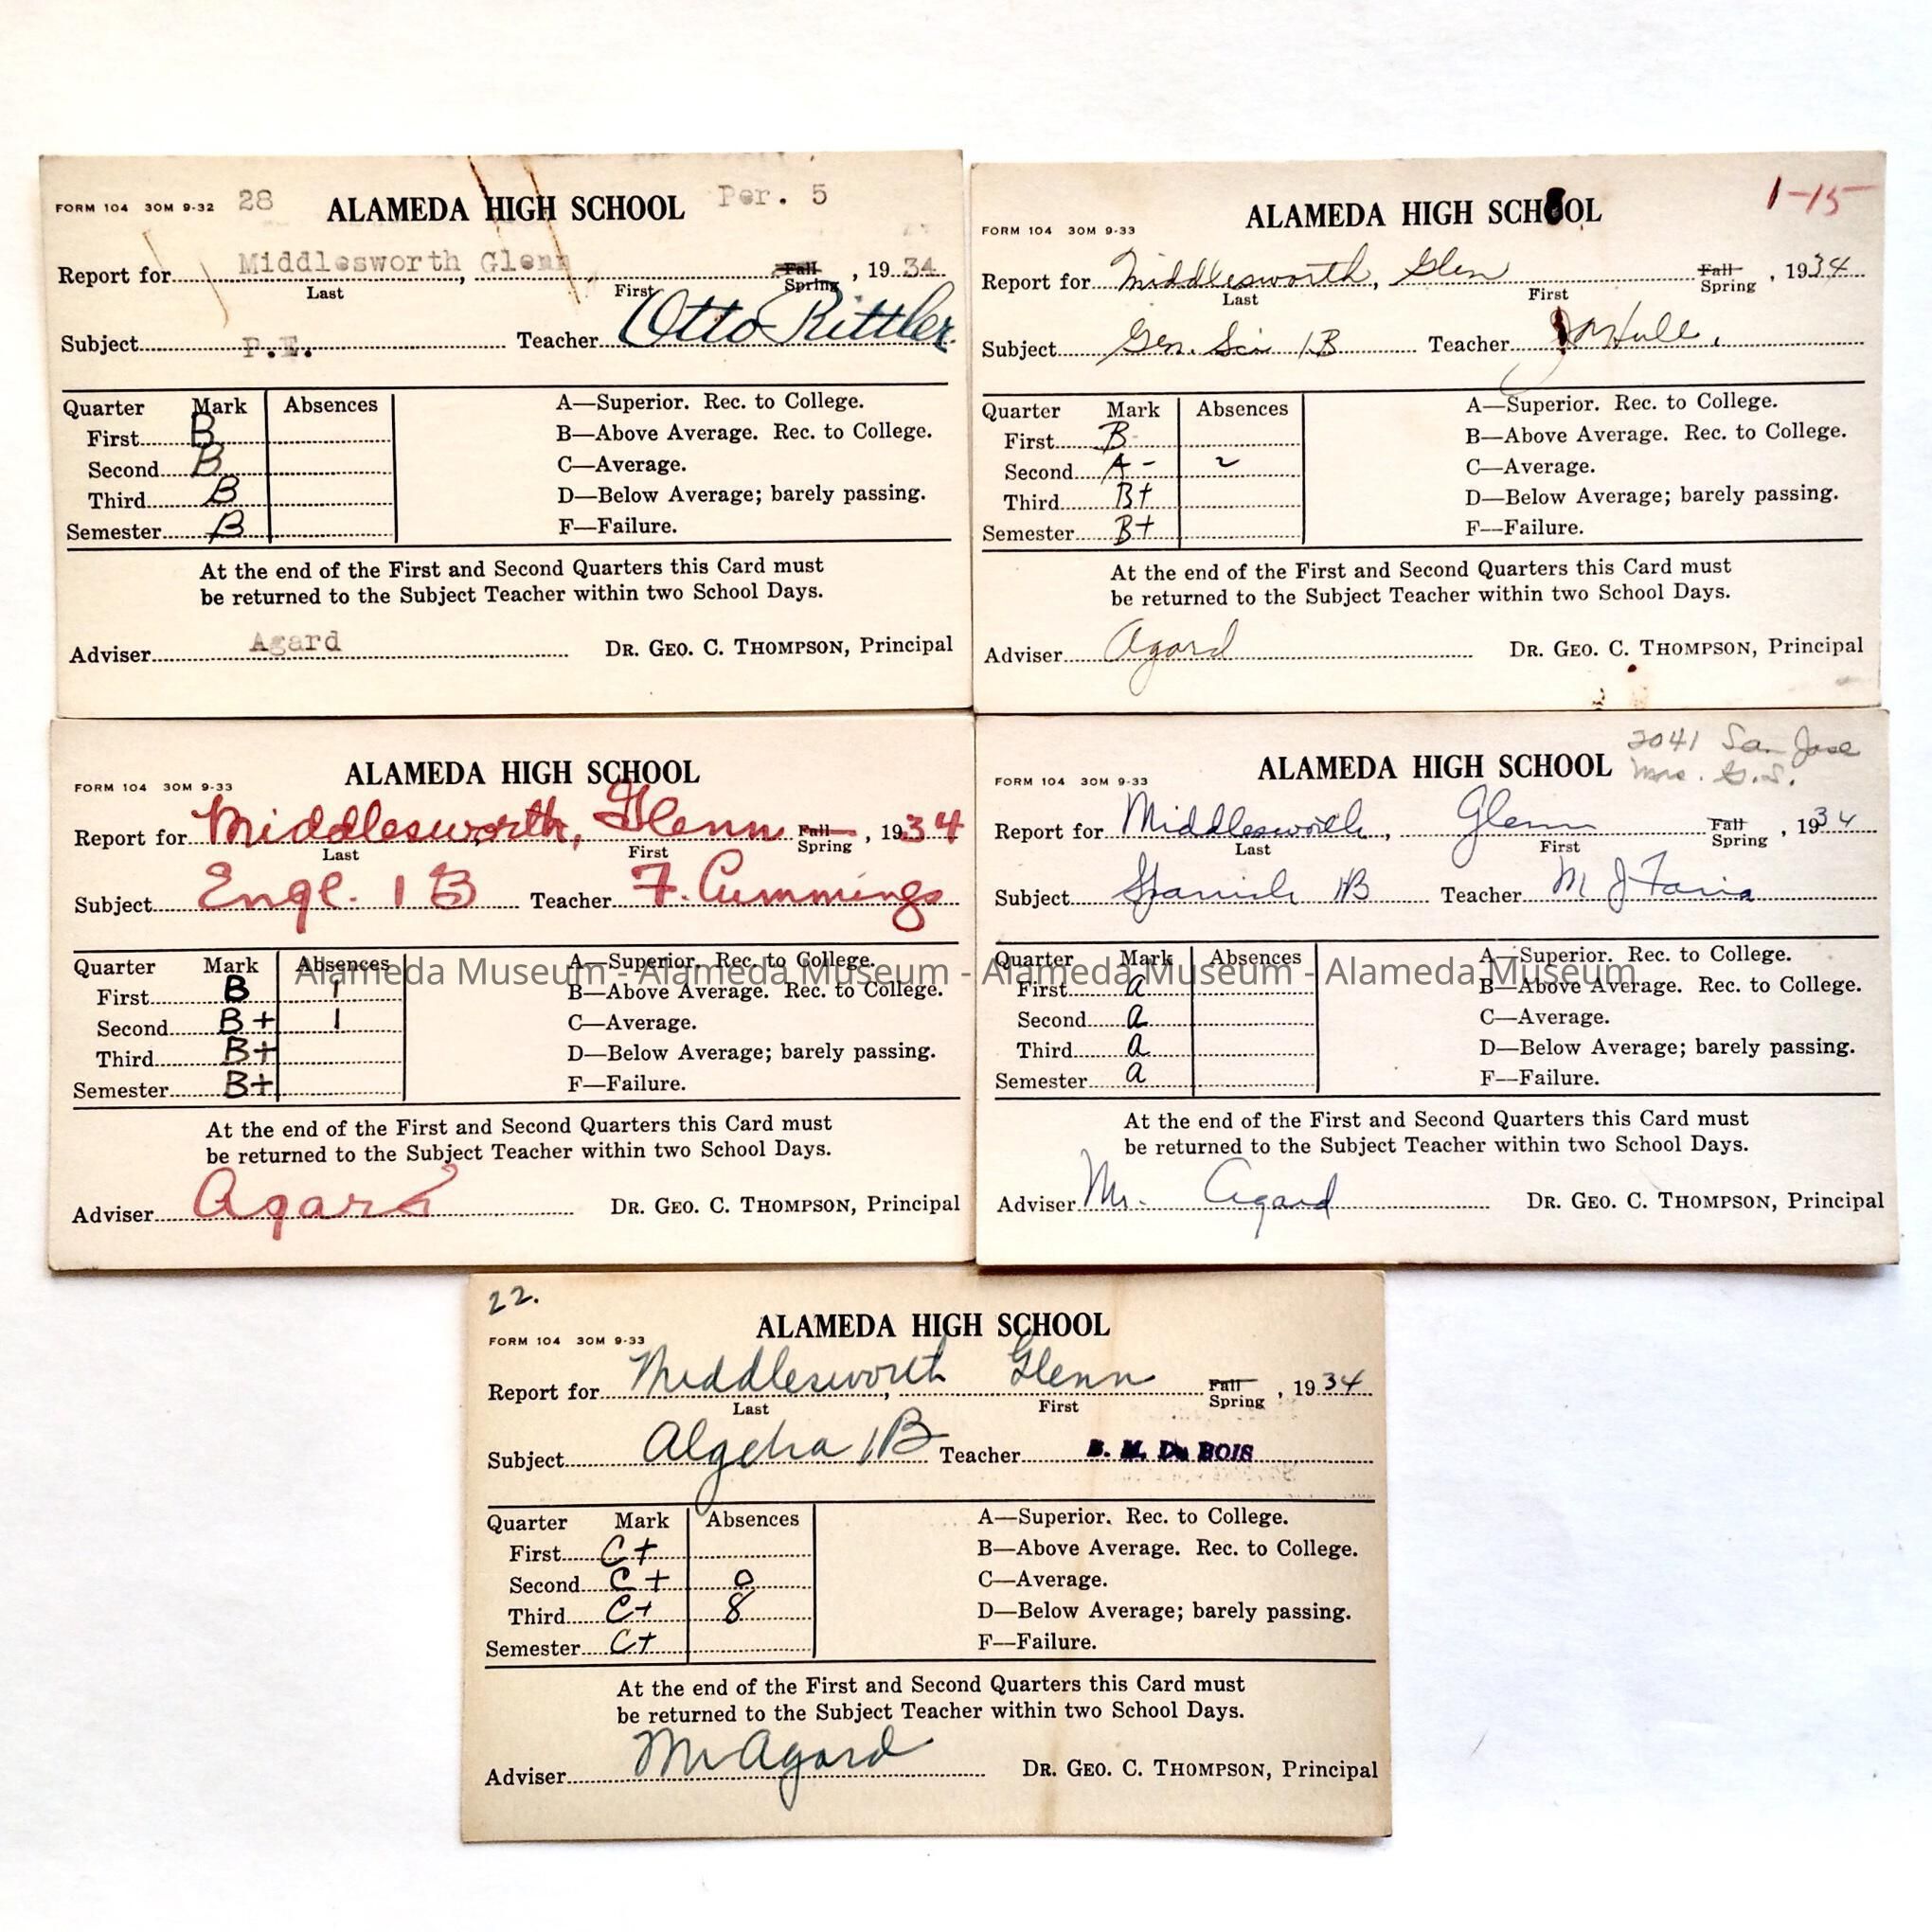 FORM 104 30M 9-32 28 ALAMEDA HIGH SCHOOL Per. 5
Report for Middlesworth, Glenn Fall , 1934
Last First Spring
Subject P.E. Teacher Otto Rittler
Quarter Mark Absences A—Superior. Rec. to College.
First B B—Above Average. Rec. to College.
Second B C—Average.
Third B D—Below Average; barely passing.
Semester B F—Failure.
At the end of the First and Second Quarters this Card must
be returned to the Subject Teacher within two School Days.
Adviser Agard DR. GEO. C. THOMPSON, Principal
FORM 104 30M 9-33 ALAMEDA HIGH SCHOOL 1-15
Report for Middlesworth, Glen Fall , 1934
Last First Spring
Subject Gen. Sci 1B Teacher Hull
Quarter Mark Absences A—Superior. Rec. to College.
First B- B—Above Average. Rec. to College.
Second A- 2 C—Average.
Third B+ D—Below Average; barely passing.
Semester B+ F—Failure.
At the end of the First and Second Quarters this Card must
be returned to the Subject Teacher within two School Days.
Adviser Agard DR. GEO. C. THOMPSON, Principal
FORM 104 30M 9-33 ALAMEDA HIGH SCHOOL
Report for Middlesworth, Glenn Fall , 1934
Last First Spring
Subject Engl. 1B Teacher F. Cummings
Quarter Mark Absences A—Superior. Rec. to College.
First B 1 B—Above Average. Rec. to College.
Second B+ 1 C—Average.
Third B+ D—Below Average; barely passing.
Semester B+ F—Failure.
At the end of the First and Second Quarters this Card must
be returned to the Subject Teacher within two School Days.
Adviser Agard DR. GEO. C. THOMPSON, Principal
2041 San Jose
FORM 104 30M 9-33 ALAMEDA HIGH SCHOOL Mrs. G.S.
Report for Middlesworth, Glenn Fall , 1934
Last First Spring
Subject Spanish 1B Teacher M J Faria
Quarter Mark Absences A—Superior. Rec. to College.
First a B—Above Average. Rec. to College.
Second a C—Average.
Third a D—Below Average; barely passing.
Semester a F—Failure.
At the end of the First and Second Quarters this Card must
be returned to the Subject Teacher within two School Days.
Adviser Mr. Agard DR. GEO. C. THOMPSON, Principal
Alameda Museum - Alameda Museum - Alameda Museum - Alameda Museum
22.
FORM 104 30M 9-33 ALAMEDA HIGH SCHOOL
Report for Middlesworth, Glenn Fall , 1934
Last First Spring
Subject Algebra 1B Teacher B. M. Du BOIS
Quarter Mark Absences A—Superior. Rec. to College.
First C+ B—Above Average. Rec. to College.
Second C+ 0 C—Average.
Third C+ 8 D—Below Average; barely passing.
Semester C+ F—Failure.
At the end of the First and Second Quarters this Card must
be returned to the Subject Teacher within two School Days.
Adviser Mr Agard DR. GEO. C. THOMPSON, Principal